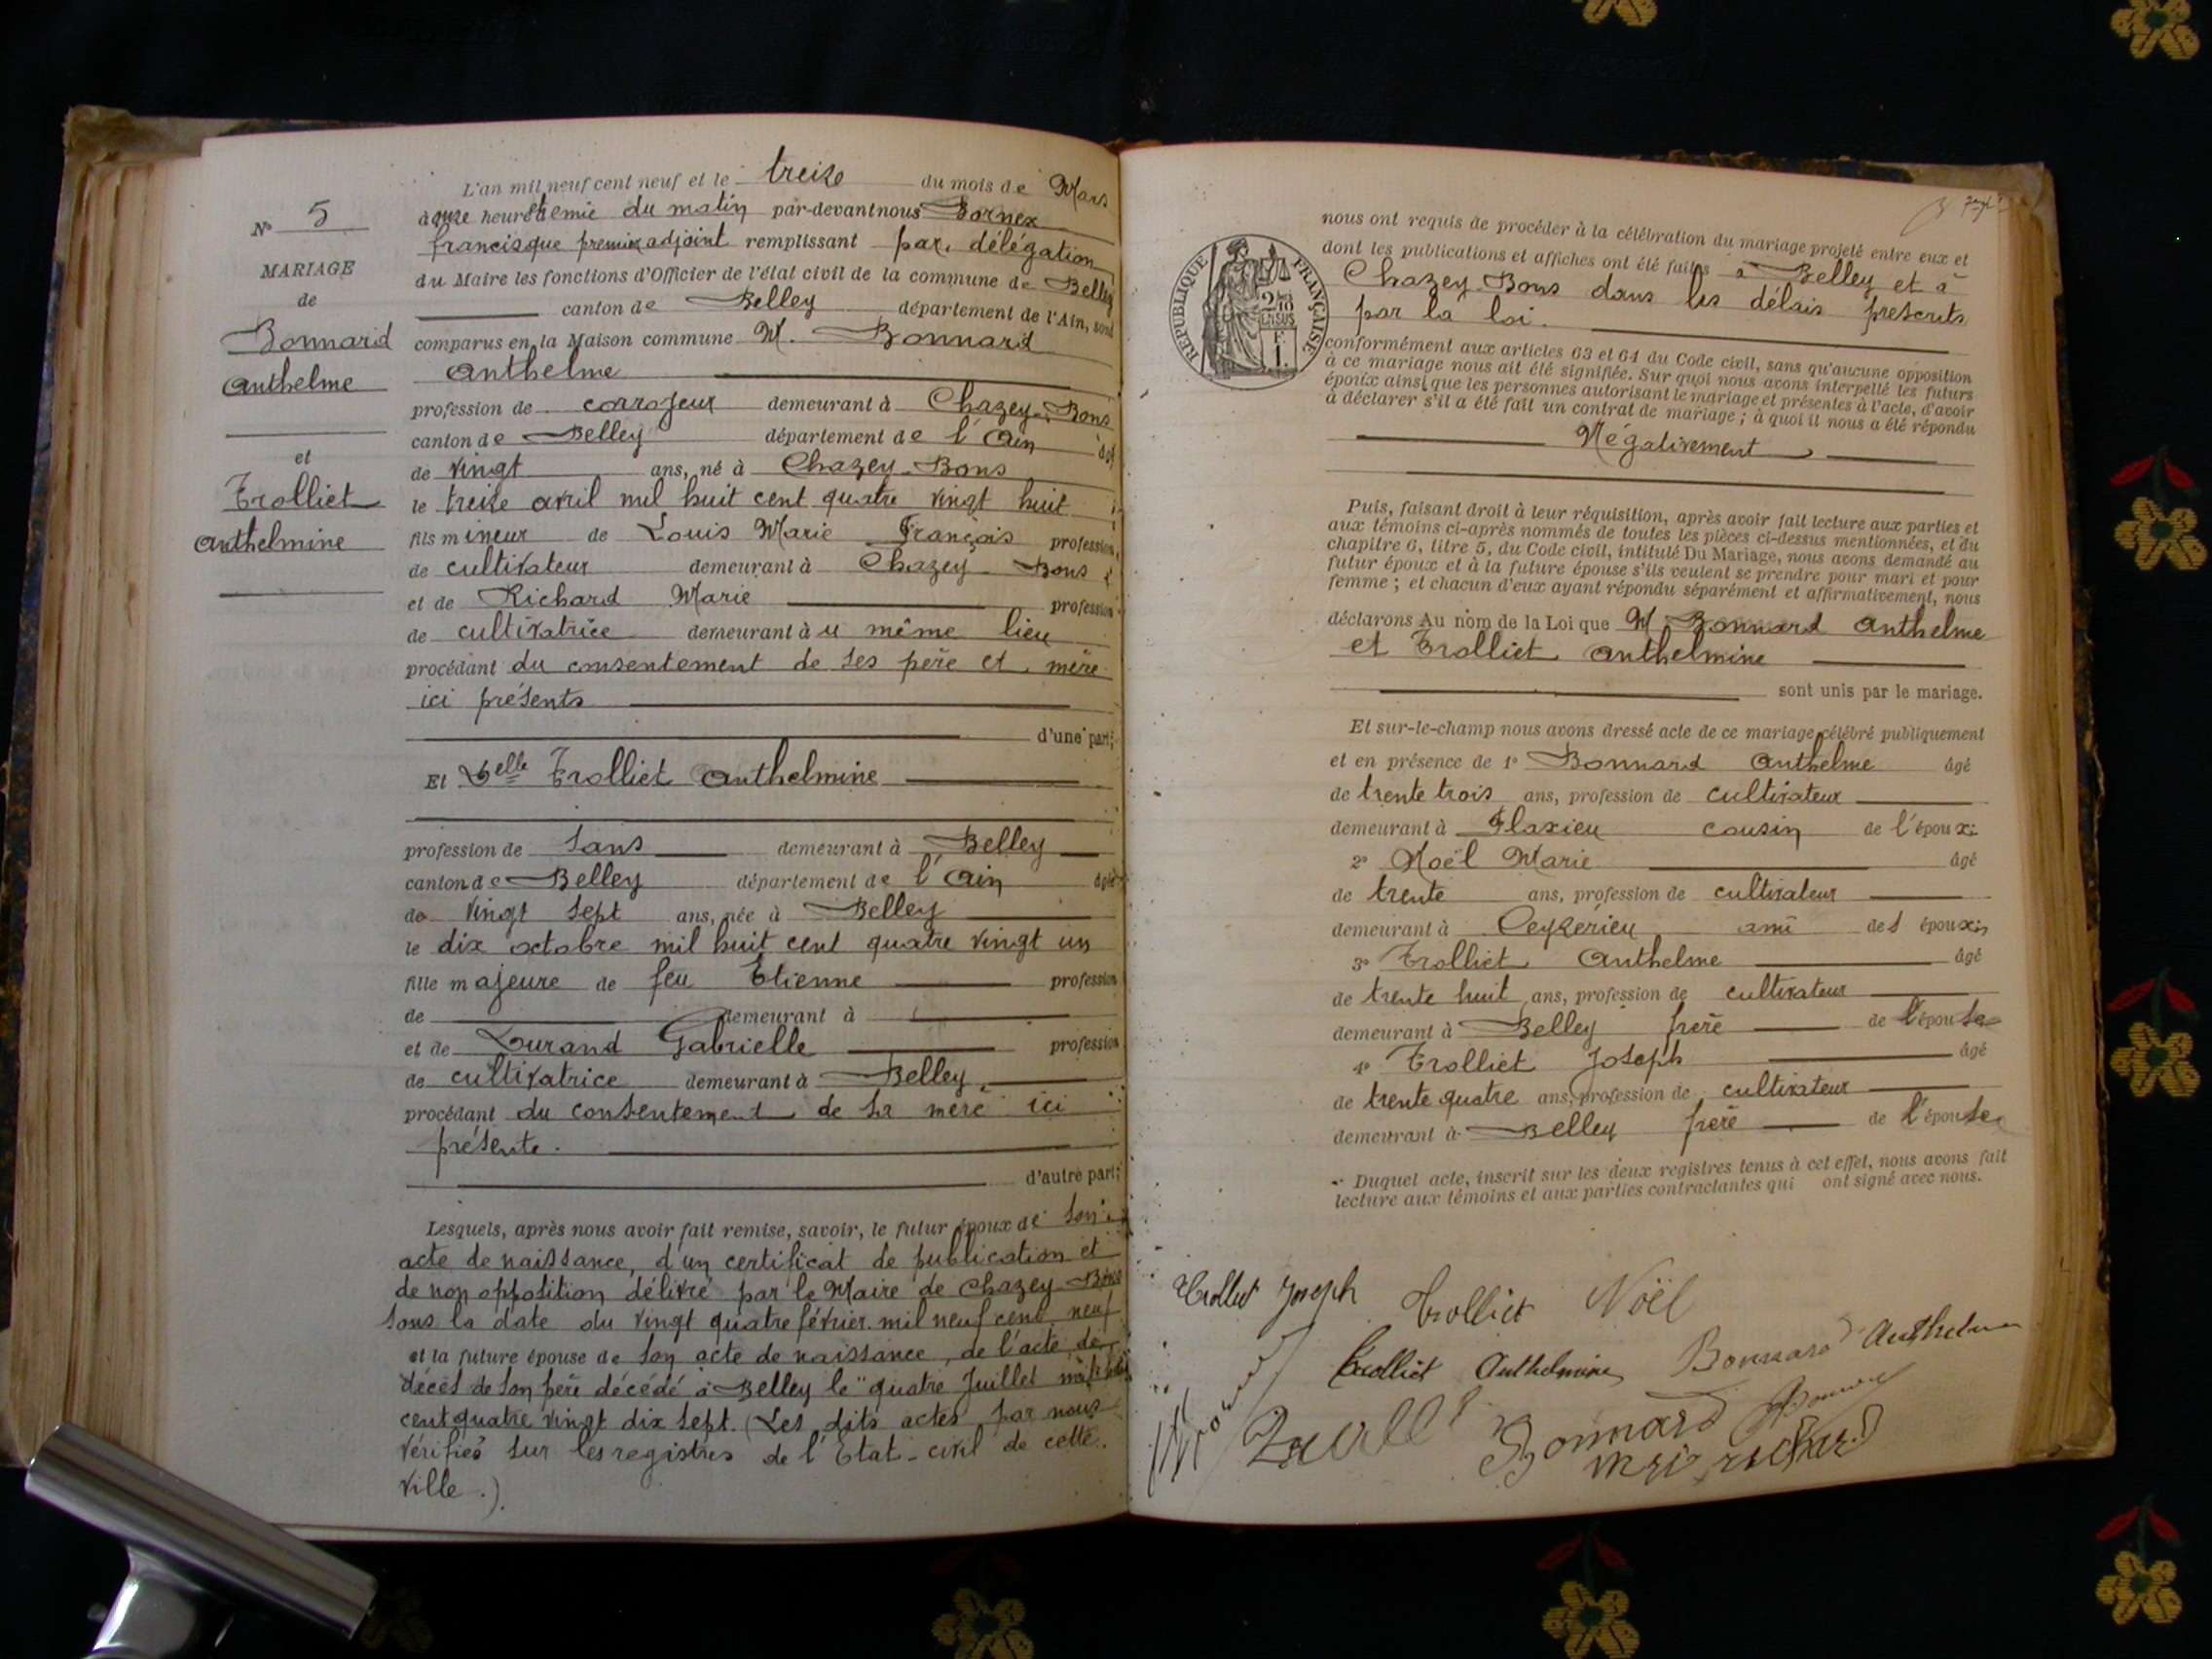 N° 5
MARIAGE
de
Bonnard
Anthelme
et
Trolliet
Anthelmine
L'an mil neuf cent neuf et le treize du mois de Mars
à onze heures et demie du matin par-devant nous Bornex
francisque premier adjoint remplissant par délégation
du Maire les fonctions d'Officier de l'état civil de la commune de Belley
canton de Belley département de l'Ain, sont
comparus en la Maison commune M. Bonnard
Anthelme
profession de corroyeur demeurant à Chazey-Bons
canton de Belley département de l'Ain âgé
de vingt ans, né à Chazey-Bons
le treize avril mil huit cent quatre vingt huit
fils mineur de Louis Marie François profession
de cultivateur demeurant à Chazey-Bons
et de Richard Marie profession
de cultivatrice demeurant à u même lieu
procédant du consentement de ses père et mère
ici présents
d'une part;
Et Delle Trolliet Anthelmine
profession de sans demeurant à Belley
canton de Belley département de l'Ain âgée
de vingt sept ans, née à Belley
le dix octobre mil huit cent quatre vingt un
fille majeure de feu Etienne profession
de demeurant à
et de Durand Gabrielle profession
de cultivatrice demeurant à Belley
procédant du consentement de sa mère ici
présente.
d'autre part;
Lesquels, après nous avoir fait remise, savoir, le futur époux de son
acte de naissance, d'un certificat de publication et
de non opposition délivré par le Maire de Chazey-Bons
sous la date du vingt quatre février mil neuf cent neuf
et la future épouse de son acte de naissance, de l'acte de
décès de son père décédé à Belley le quatre Juillet mil huit
cent quatre vingt dix sept. (Les dits actes par nous
vérifiés sur les registres de l'Etat-civil de cette
ville.).
REPUBLIQUE FRANÇAISE
2/10 EN SUS
F. 1.
nous ont requis de procéder à la célébration du mariage projeté entre eux et
dont les publications et affiches ont été faites à Belley et à
Chazey-Bons dans les délais prescrits
par la loi.
conformément aux articles 63 et 64 du Code civil, sans qu'aucune opposition
à ce mariage nous ait été signifiée. Sur quoi nous avons interpellé les futurs
époux ainsi que les personnes autorisant le mariage et présentes à l'acte, d'avoir
à déclarer s'il a été fait un contrat de mariage ; à quoi il nous a été répondu
Négativement
Puis, faisant droit à leur réquisition, après avoir fait lecture aux parties et
aux témoins ci-après nommés de toutes les pièces ci-dessus mentionnées, et du
chapitre 6, titre 5, du Code civil, intitulé Du Mariage, nous avons demandé au
futur époux et à la future épouse s'ils veulent se prendre pour mari et pour
femme ; et chacun d'eux ayant répondu séparément et affirmativement, nous
déclarons Au nom de la Loi que M. Bonnard Anthelme
et Trolliet Anthelmine
sont unis par le mariage.
Et sur-le-champ nous avons dressé acte de ce mariage célébré publiquement
et en présence de 1° Bonnard Anthelme âgé
de trente trois ans, profession de cultivateur
demeurant à Flaxieu cousin de l'époux;
2° Noël Marie âgé
de trente ans, profession de cultivateur
demeurant à Ceyzérieu ami des époux;
3° Trolliet Anthelme âgé
de trente huit ans, profession de cultivateur
demeurant à Belley frère de l'épouse
4° Trolliet Joseph âgé
de trente quatre ans, profession de cultivateur
demeurant à Belley frère de l'épouse
Duquel acte, inscrit sur les deux registres tenus à cet effet, nous avons fait
lecture aux témoins et aux parties contractantes qui ont signé avec nous.
Trolliet Joseph Trolliet Noël
Trolliet Anthelmine Bonnard Anthelme
Bonnard